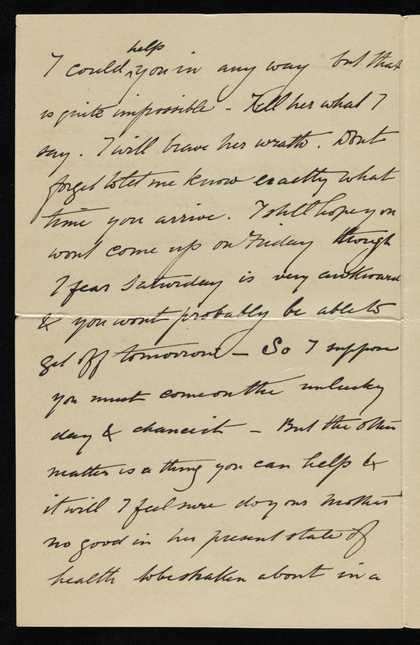 I could help you in any way but that
is quite impossible - Tell her what I
say. I will brave her wrath. Dont
forget to let me know exactly what
time you arrive. I still hope you
wont come up on Friday though
I fear Saturday is very awkward
& you wont probably be able to
get off tomorrow - So I suppose
you must come on the unlucky
day & chance it - But the other
matter is a thing you can help &
it will I feel sure do your mother
no good in her present state of
health to be shaken about in a